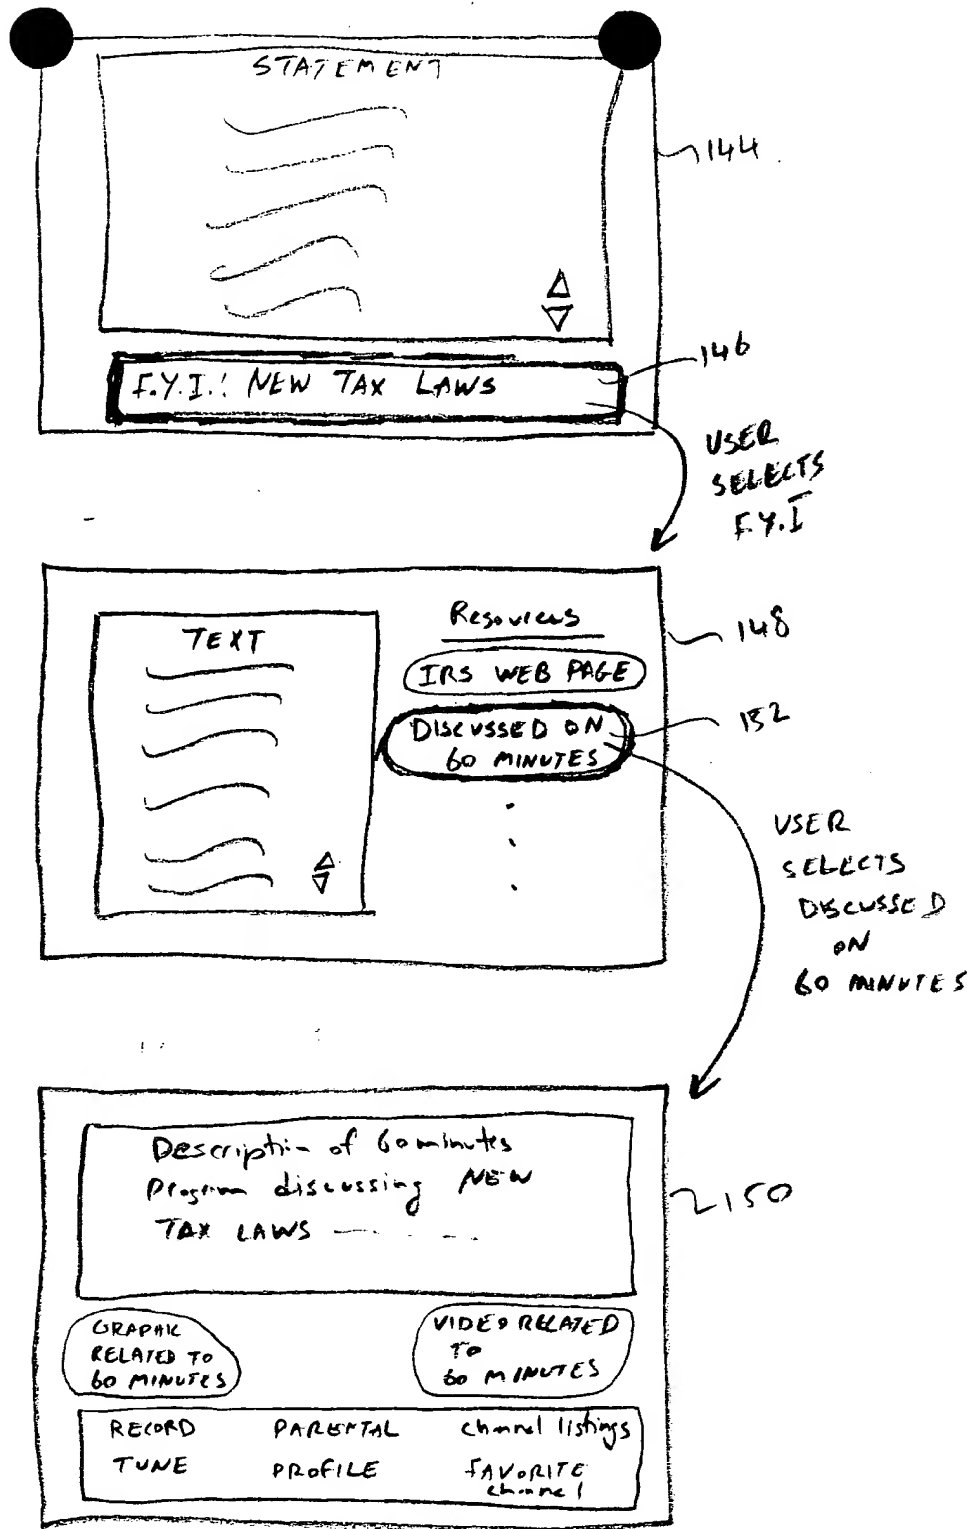 STATEMENT
144
146
F.Y.I.: NEW TAX LAWS
USER
SELECTS
F.Y.I
Resources
148
TEXT
IRS WEB PAGE
152
DISCUSSED ON
60 MINUTES
USER
SELECTS
DISCUSSED
ON
60 MINUTES
Description of 60 minutes
Program discussing NEW
TAX LAWS
150
GRAPHIC
RELATED TO
60 MINUTES
VIDEO RELATED
TO
60 MINUTES
RECORD PARENTAL channel listings
TUNE PROFILE FAVORITE
channel